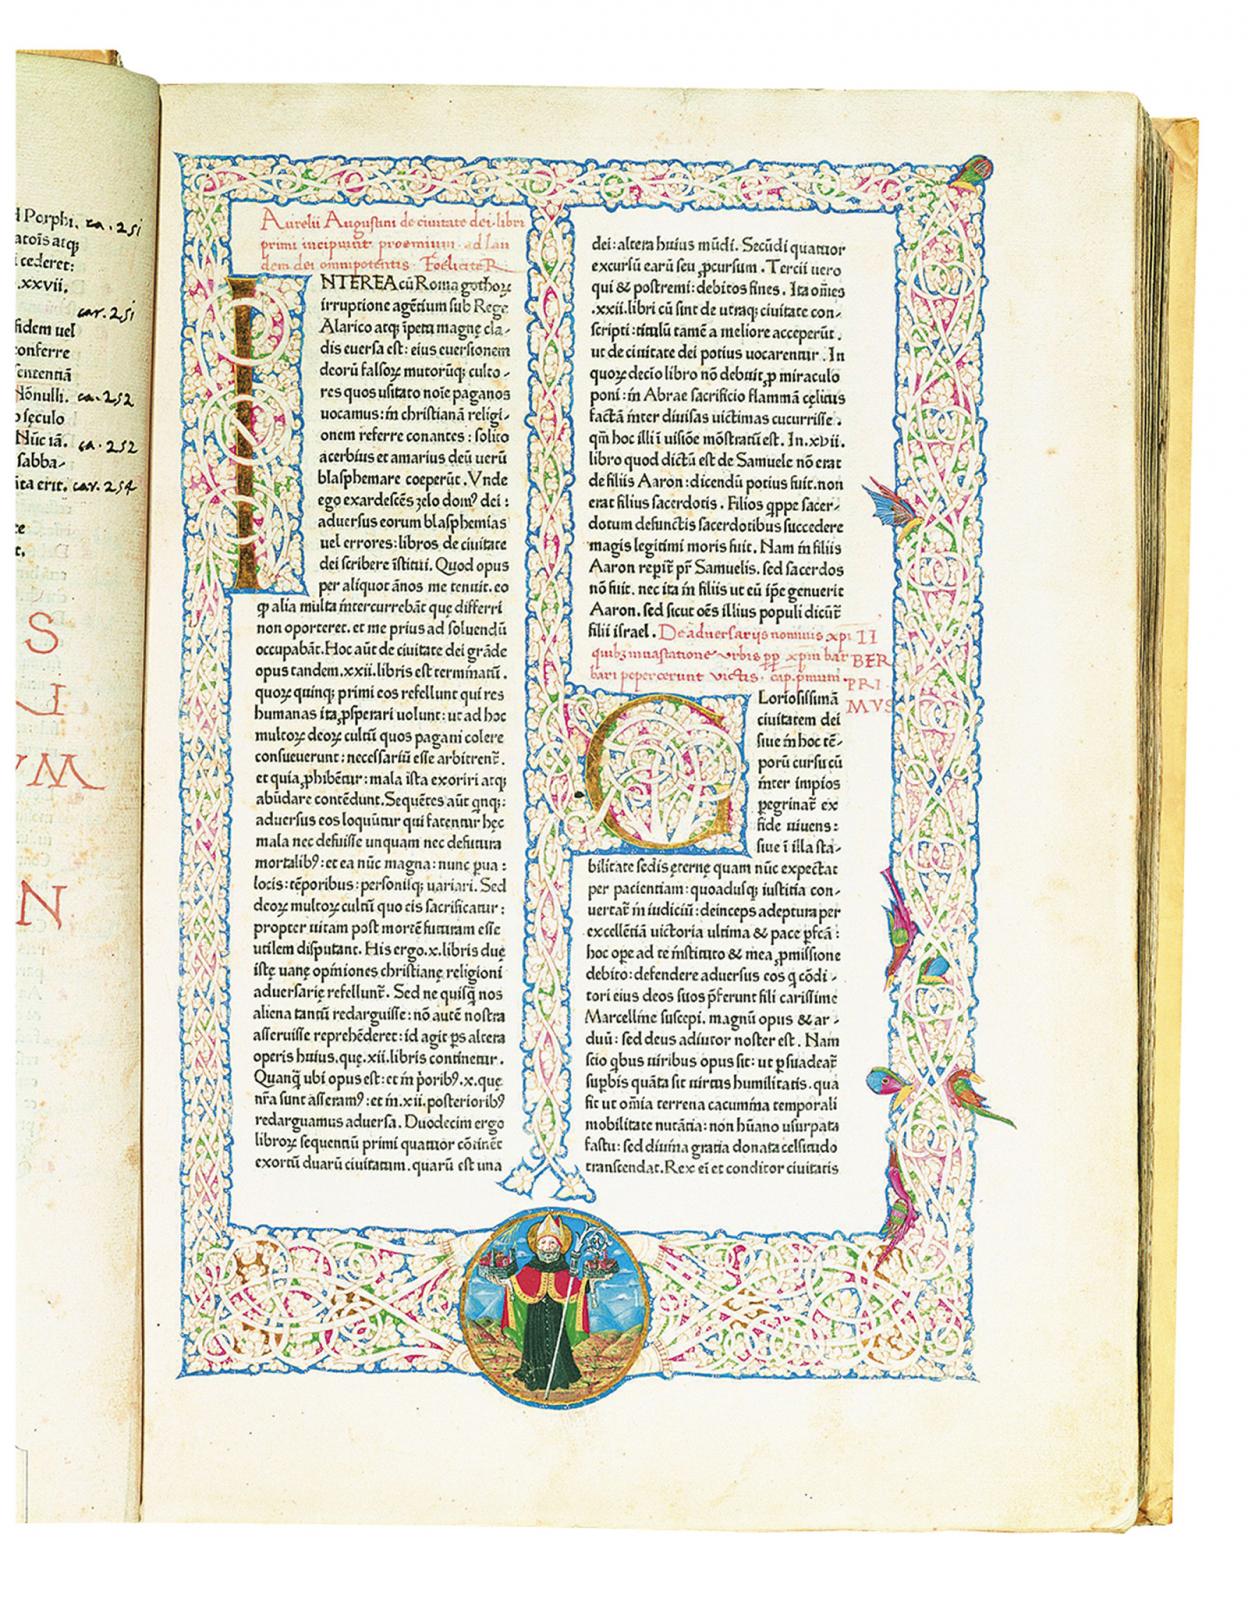 d Porphi. ca. 251
atoīs atq;
i cederet:
.xxvii.
car. 251
fidem uel
conferre
sententiā
Nōnulli. ca. 252
o sęculo
Nūc iā. ca. 252
sabba-
ita erit. car. 254
S
VM
N
Aurelii Augustini de ciuitate dei libri
primi incipiunt proemium ad lau
dem dei omnipotentis FoeliciteR
INTEREA cū Roma gothoꝝ
irruptione agētium sub Rege
Alarico atq; īpetu magnę cla-
dis euersa est: eius euersionem
deorū falsoꝝ mutorūq; culto-
res quos usitato noīe paganos
uocamus: in christianā religi-
onem referre conantes: solito
acerbius et amarius deū uerū
blasphemare coeperūt. Vnde
ego exardescēs zelo domꝰ dei:
aduersus eorum blasphemias
uel errores: libros de ciuitate
dei scribere īstitui. Quod opus
per aliquot ānos me tenuit. eo
ꝙ alia multa intercurrebāt quę differri
non oporteret. et me prius ad soluendū
occupabāt. Hoc aūt de ciuitate dei grāde
opus tandem .xxii. libris est terminatū.
quoꝝ quinq; primi eos refellunt qui res
humanas ita ꝓsperari uolunt: ut ad hoc
multoꝝ deoꝝ cultū quos pagani colere
consueuerunt: necessariū esse arbitrent̄.
et quia ꝓhibētur: mala ista exoriri atq;
abūdare contēdunt. Sequētes aūt qnq;:
aduersus eos loquūtur qui fatentur hęc
mala nec defuisse unquam nec defutura
mortalibꝰ: et ea nūc magna: nunc ꝑua:
locis: tēporibus: personisq; uariari. Sed
deoꝝ multoꝝ cultū quo eis sacrificatur:
propter uitam post mortē futuram esse
utilem disputant. His ergo .x. libris duę
istę uanę opiniones christianę religioni
aduersarię refellunt̄. Sed ne quisq̄ nos
aliena tantū redarguisse: nō autē nostra
asseruisse reprehēderet: id agit ꝑs altera
operis huius. quę .xii. libris continetur.
Quanq̄ ubi opus est: et in p̄oribꝰ .x. quę
nr̄a sunt asseramꝰ: et in .xii. posterioribꝰ
redarguamus aduersa. Duodecim ergo
libroꝝ sequentiū primi quattuor cōtinēt
exortū duarū ciuitatum. quarū est una
dei: altera huius mūdi. Secūdi quattuor
excursū earū seu ꝓcursum. Tercii uero
qui & postremi: debitos fines. Ita om̄es
.xxii. libri cū sint de utraq; ciuitate con-
scripti: titulū tamē a meliore acceperūt.
ut de ciuitate dei potius uocarentur. In
quoꝝ decio libro nō debuit ꝓ miraculo
poni: in Abrae sacrificio flammā cęlitus
factā inter diuisas uictimas cucurrisse.
qm̄ hoc illi ī uisiōe mōstratū est. In .xvii.
libro quod dictū est de Samuele nō erat
de filiis Aaron: dicendū potius fuit. non
erat filius sacerdotis. Filios qppe sacer-
dotum defunctis sacerdotibus succedere
magis legitimi moris fuit. Nam in filiis
Aaron repit̄ pr̄ Samuelis. sed sacerdos
nō fuit. nec ita in filiis ut eū ip̄e genuerit
Aaron. sed sicut oēs illius populi dicūt̄
filii israel. De aduersariis nominis xpi II
quibꝫ in uastatione vrbis ꝓp xpm bar BER
bari pepercerunt victis. cap. pmum. PRI
MVS
GLoriosissimā
ciuitatem dei
siue in hoc tē-
porū cursu cū
inter impios
ꝑegrinat̄ ex
fide uiuens:
siue ī illa sta-
bilitate sedis ęternę quam nūc expectat
per pacientiam: quoadusq; iustitia con-
uertat̄ in iudiciū: deinceps adeptura per
excellētiā uictoria ultima & pace ꝑfcā:
hoc oꝑe ad te instituto & mea ꝓmissione
debito: defendere aduersus eos q cōdi-
tori eius deos suos p̄ferunt fili carissime
Marcelline suscepi. magnū opus & ar-
duū: sed deus adiutor noster est. Nam
scio qbus uiribus opus sit: ut ꝑsuadeat̄
suꝑbis quāta sit uirtus humilitatis. qua
fit ut om̄ia terrena cacumina temporali
mobilitate nutātia: non hūano usurpata
fastu: sed diuina gratia donata celsitudo
transcendat. Rex ei̅ et conditor ciuitatis